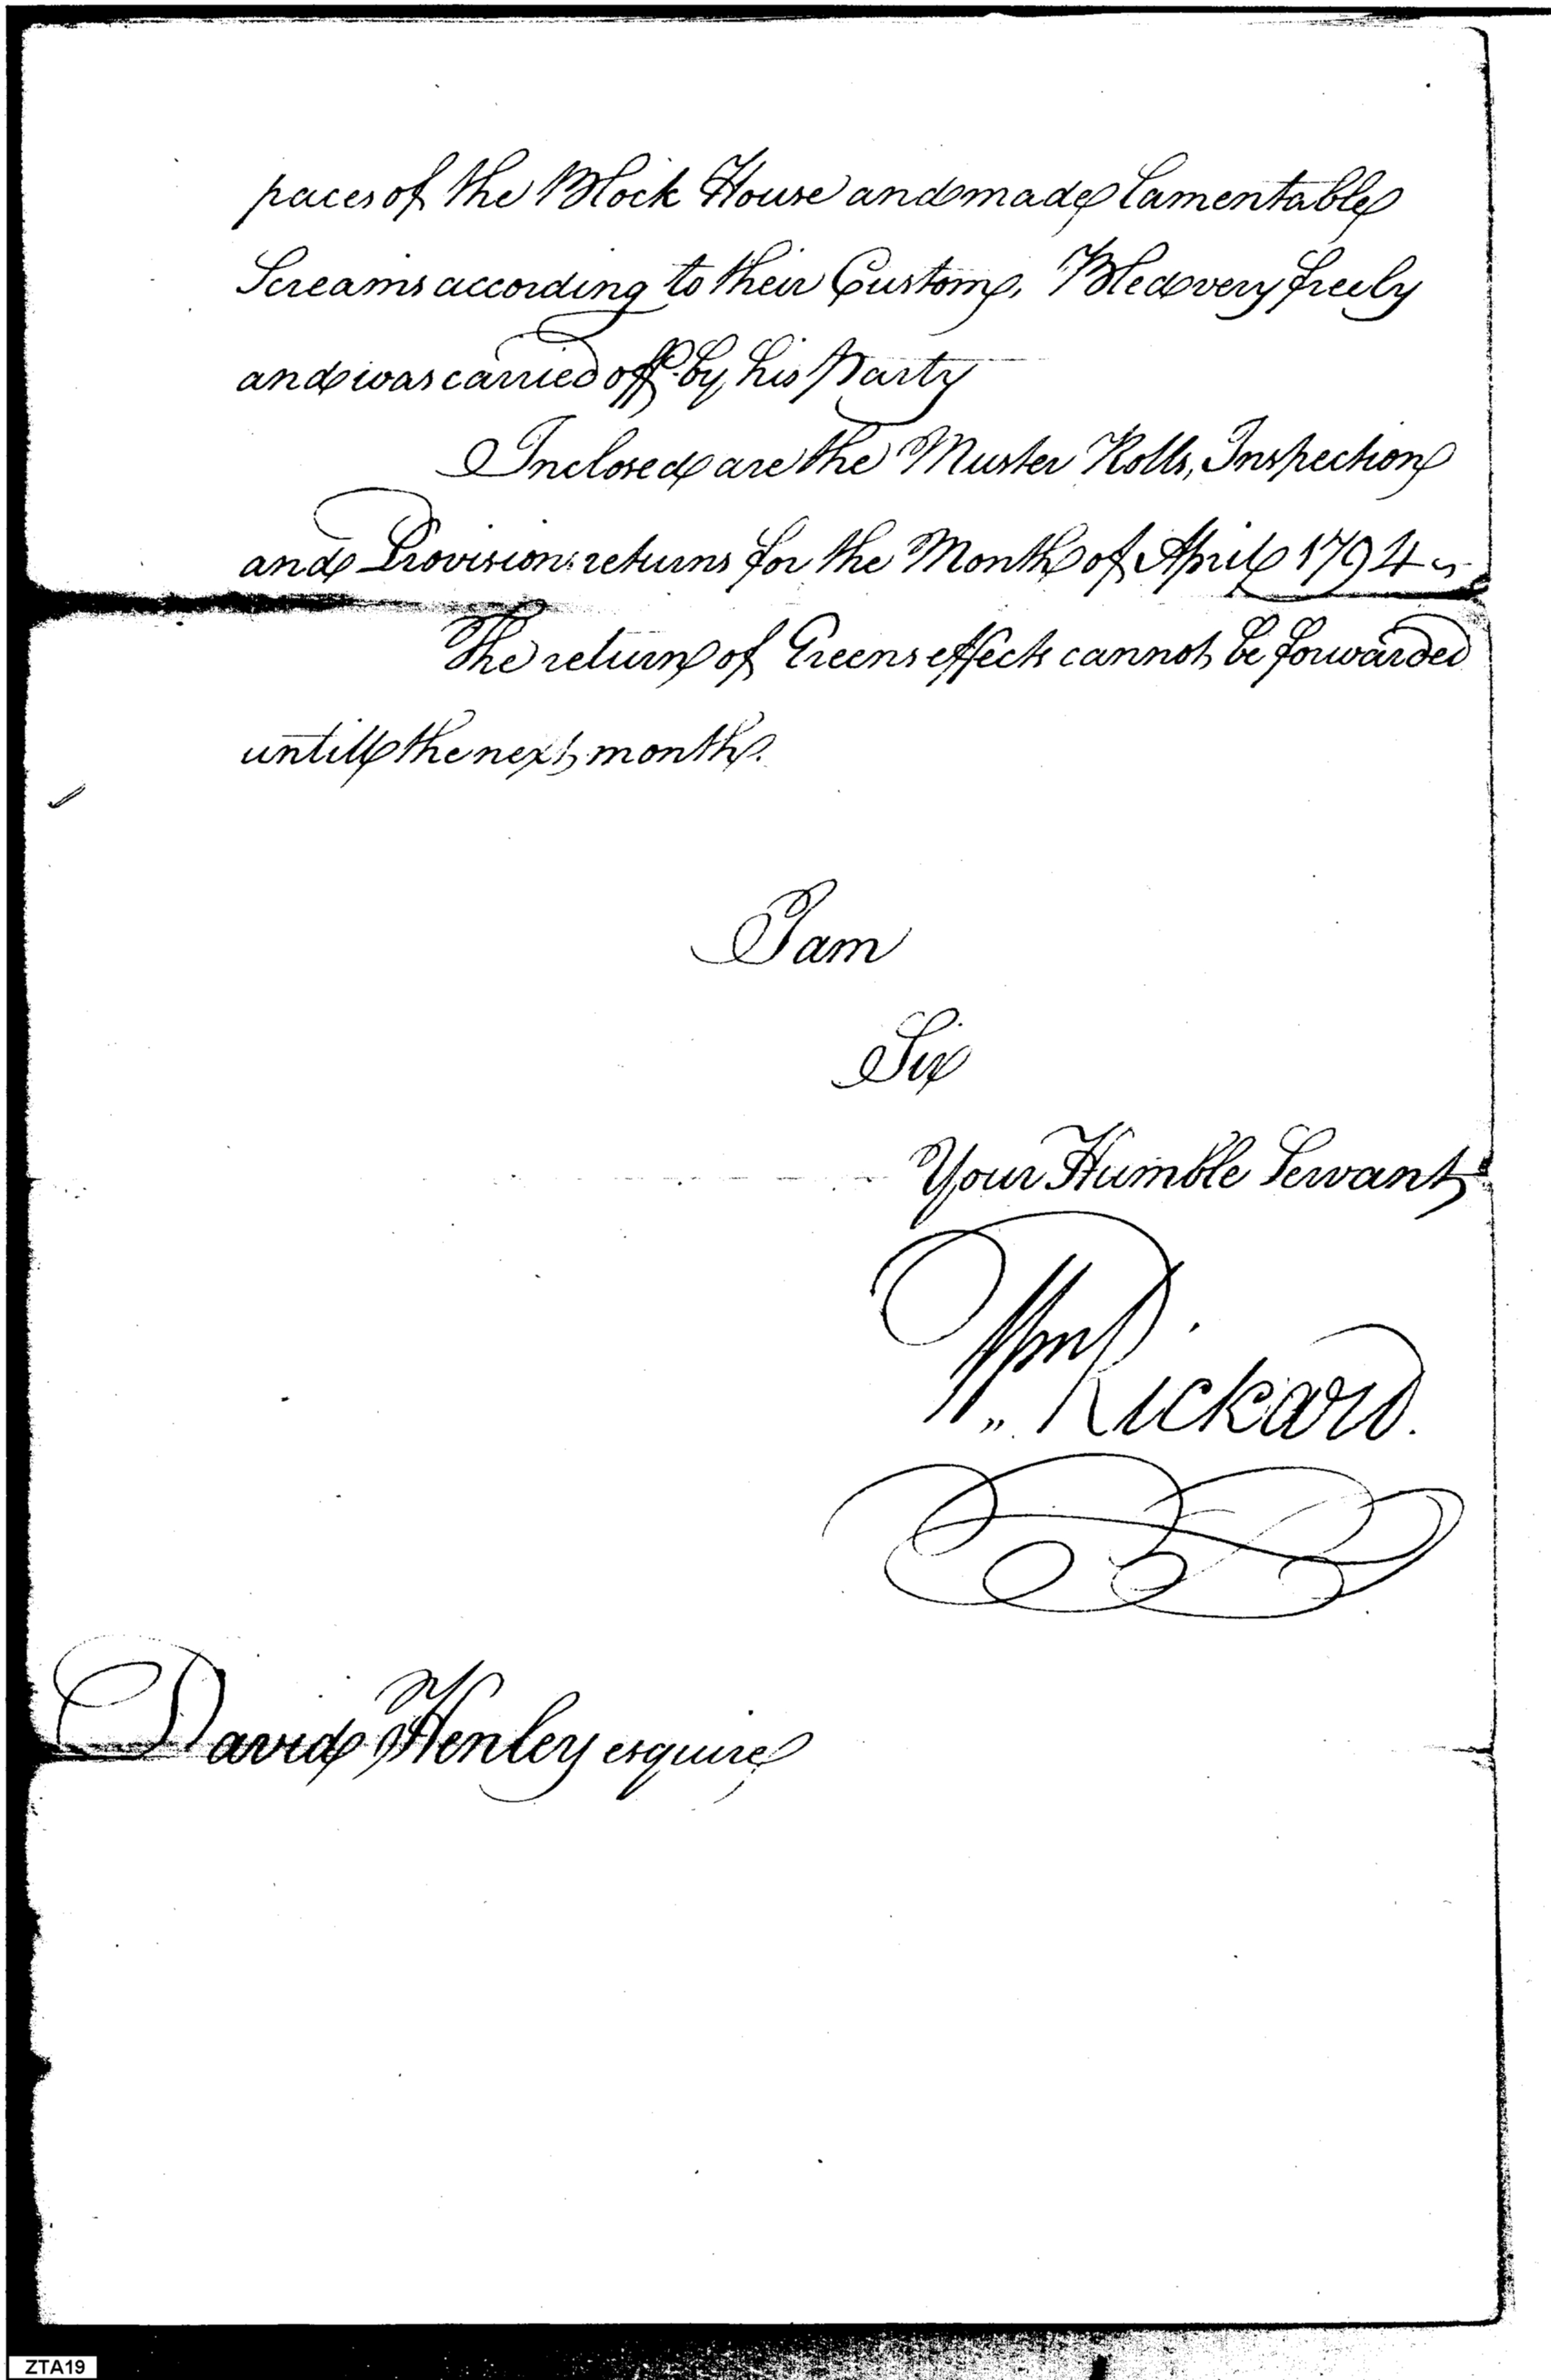 paces of the Block House and made lamentable
Screams according to their Custom, Bled very freely
and was carried off by his Party
Inclosed are the Muster Rolls, Inspection
and Provision returns for the Month of April 1794
The return of Greens effects cannot be forwarded
untill the next month.
I am
Sir
Your Humble Servant
Wm Rickard.
David Henley esquire
ZTA19